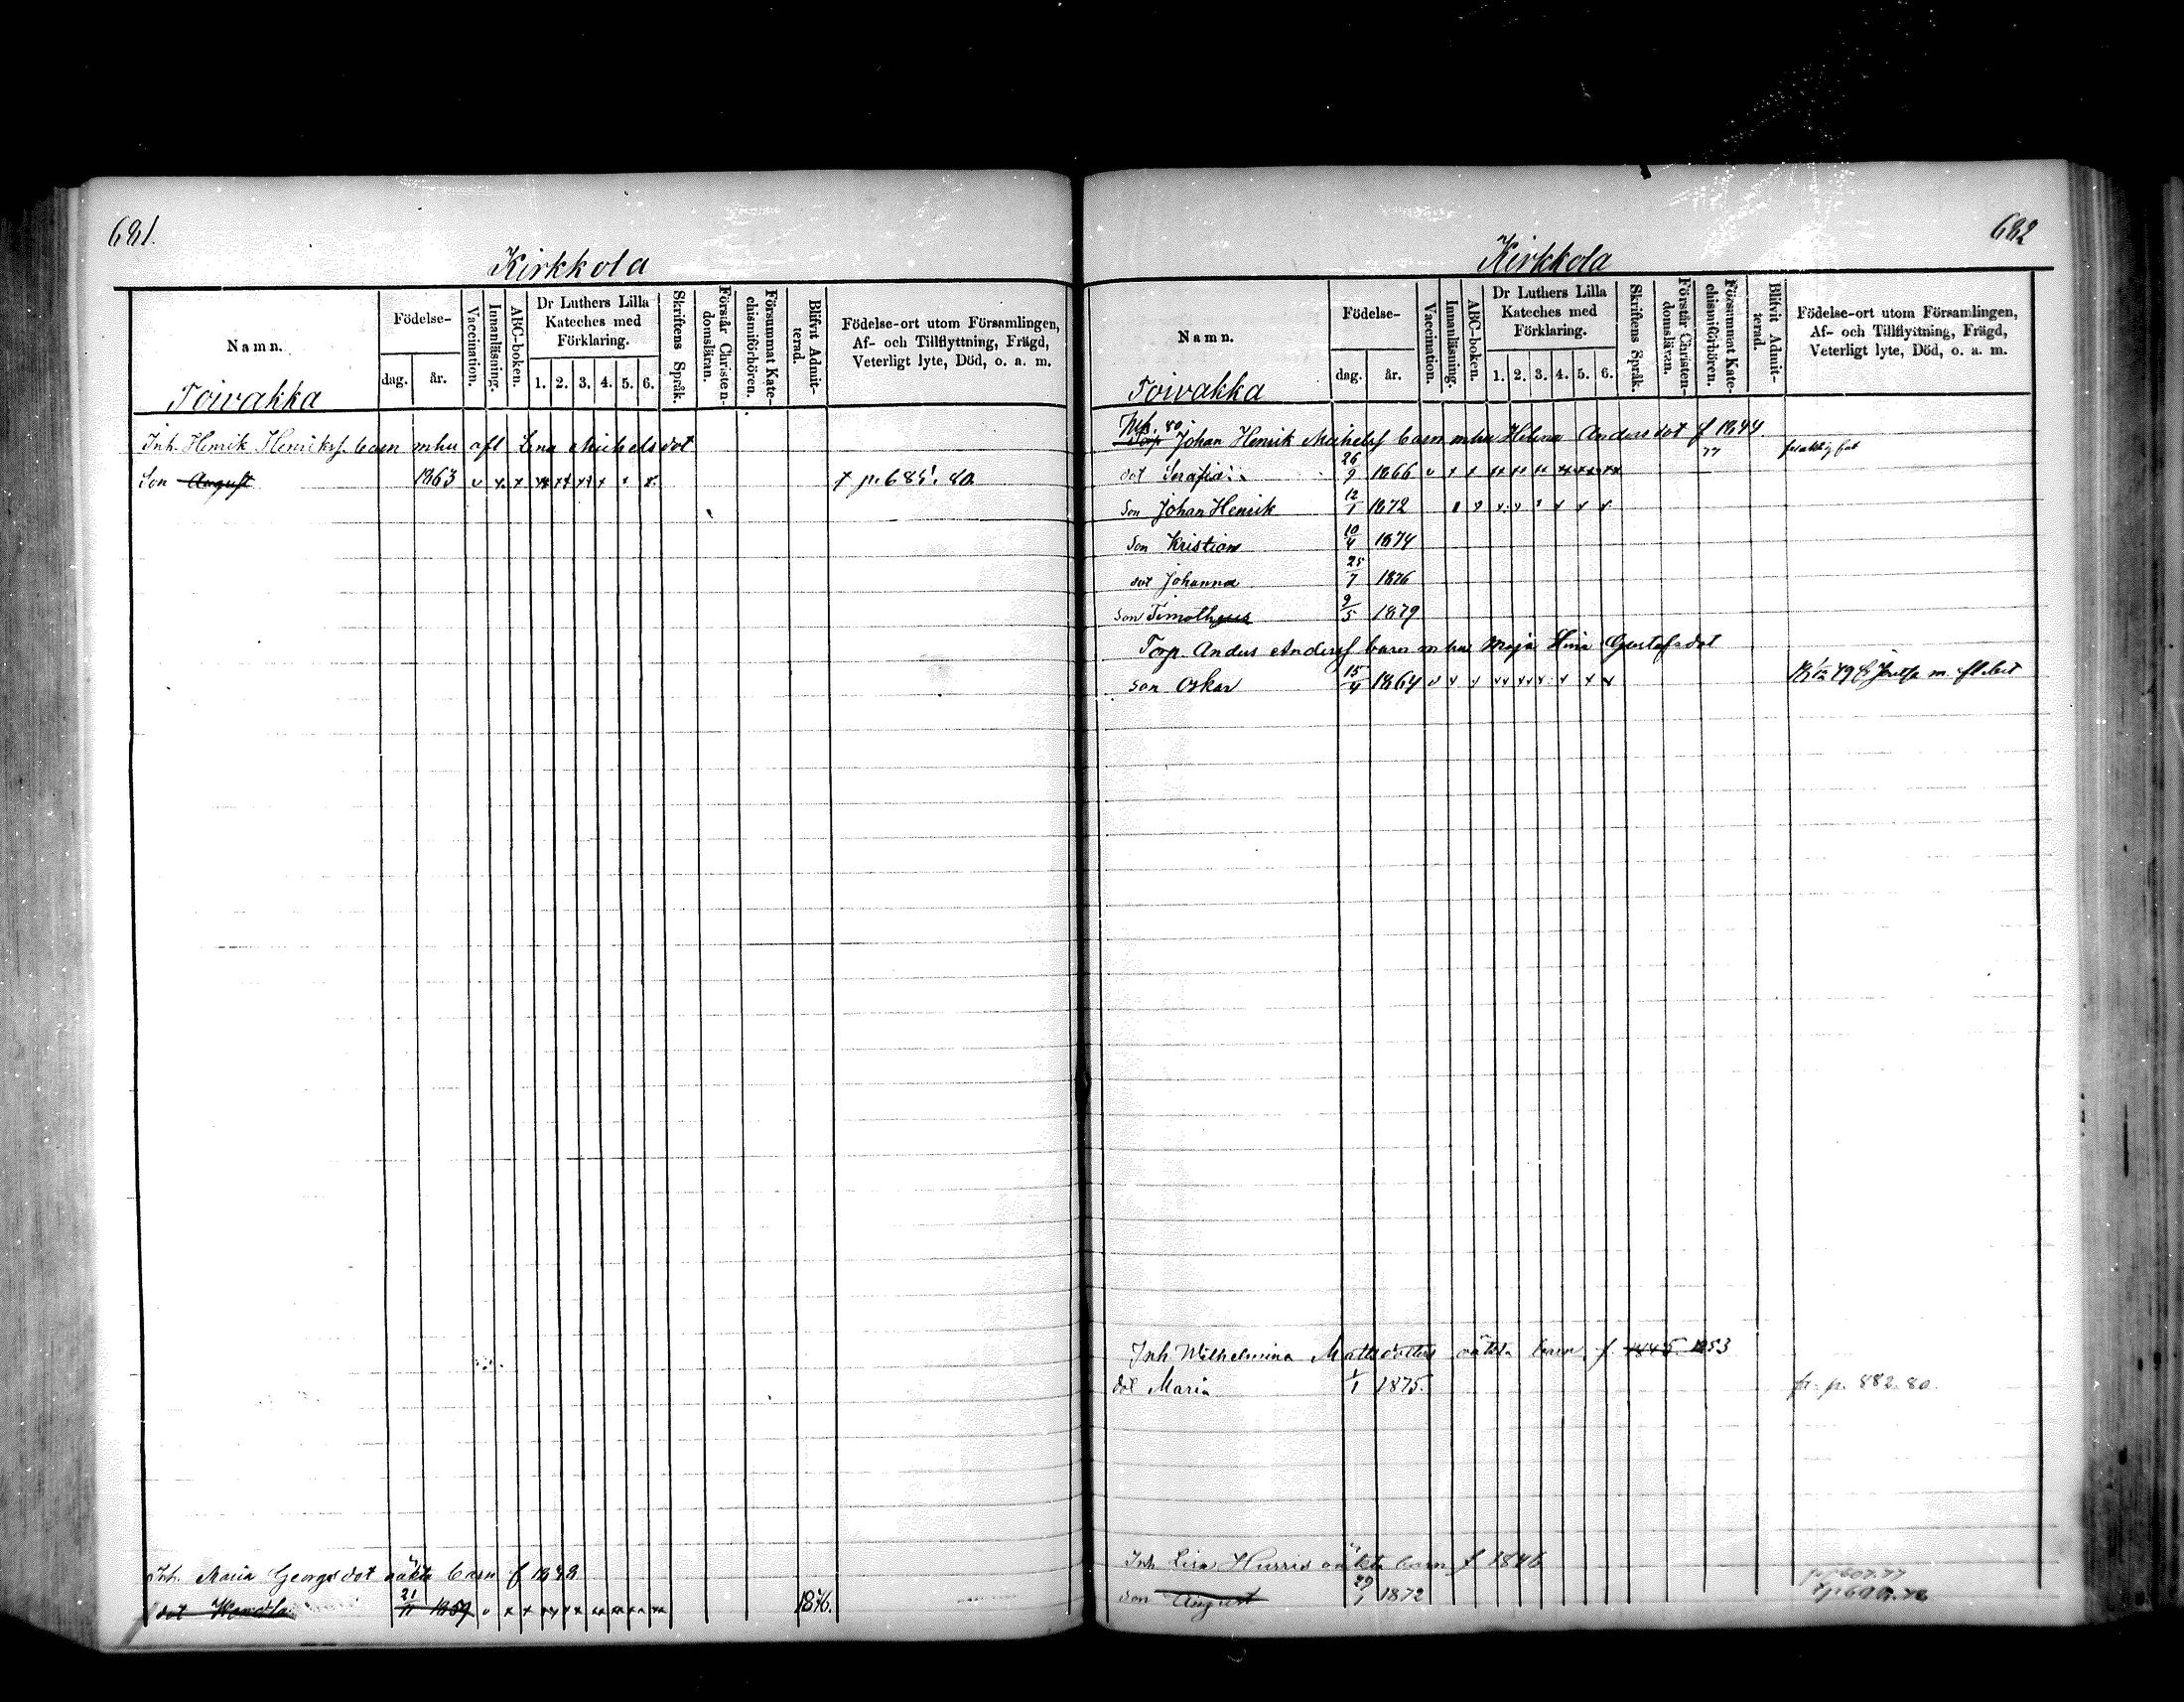 681.
Kirkkola
Namn.
Födelse-
dag.
år.
Vaccination.
Innanläsning.
ABC-boken.
Dr Luthers Lilla
Kateches med
Förklaring.
1. 2. 3. 4. 5. 6.
Skriftens Språk.
Förstår Christen-
domsläran.
Försummat Kate-
chismiförhören.
Blifvit Admit-
terad.
Födelse-ort utom Församlingen,
Af- och Tillflyttning, Frägd,
Veterligt lyte, Död, o. a. m.
Toivakka
Inh. Henrik Henrikss. barn m hu afl Lena Michelsdot
Son August 1863 v x x x x x x x x x x x p. 685. 80.
Inh. Maria Georgsdot oäkta barn f 1828
dot 21/11 1859 1876.
682
Kirkkola
Namn.
Födelse-
dag.
år.
Vaccination.
Innanläsning.
ABC-boken.
Dr Luthers Lilla
Kateches med
Förklaring.
1. 2. 3. 4. 5. 6.
Skriftens Språk.
Förstår Christen-
domsläran.
Försummat Kate-
chismiförhören.
Blifvit Admit-
terad.
Födelse-ort utom Församlingen,
Af- och Tillflyttning, Frägd,
Veterligt lyte, Död, o. a. m.
Toivakka
Torp Johan Henrik Michelss barn m hu Helena Andersdot f 1844.
dot Serafia 26/9 1866 77
Son Johan Henrik 12/1 1872
Son Kristian 10/4 1874
dot Johanna 25/7 1876
Son Timotheus 9/5 1879
Torp. Anders Anderss barn m hu Maja Stina Gustafsdot
son Oskar 15/4 1864
Inh Wilhelmina Mattsdotters oäkta barn f. 1845. 1853
dot Maria 1/1 1875. fr. p. 882. 80.
Inh Lisa Hurris oäkta barn f 1846
son August 29/1 1872
p 607. 77